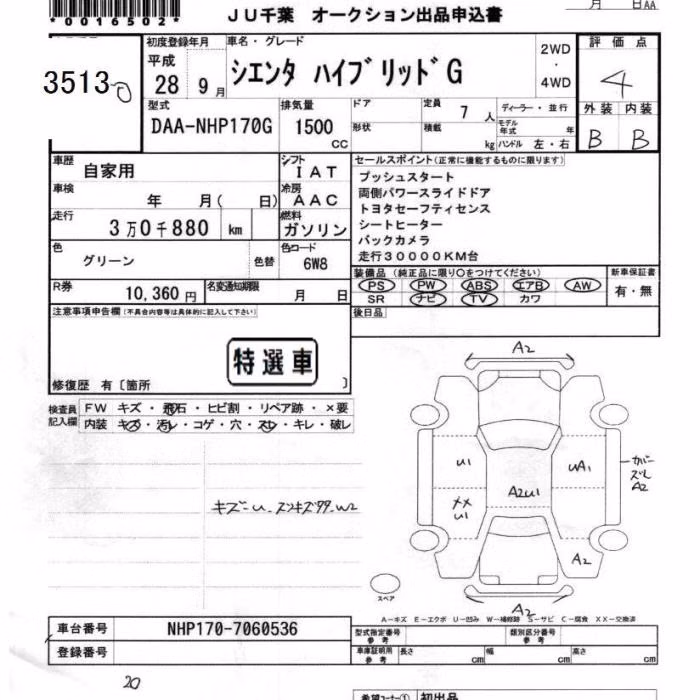 *0016502*
JU千葉 オークション出品申込書
月 日AA
3513
初度登録年月
平成
28 9月
車名・グレード
シエンタ ハイブリッドG
2WD
・
4WD
評価点
4
外装 内装
B B
型式
DAA-NHP170G
排気量
1500
cc
ドア
形状
定員
7 人
積載
kg
ディーラー・並行
モデル年式 年
ハンドル 左・右
車歴
自家用
シフト
IAT
車検
年 月( 日)
冷房
AAC
走行
3万0千880 km
燃料
ガソリン
色
グリーン
色替
色コード
6W8
R券
10,360円
名変通知期限
月 日
セールスポイント(正常に機能するものに限ります)
プッシュスタート
両側パワースライドドア
トヨタセーフティセンス
シートヒーター
バックカメラ
走行30000KM台
装備品(純正品に限り○をつけてください)
PS PW ABS エアB AW
SR ナビ TV カワ
新車保証書
有・無
後日品
注意事項申告欄(不具合内容等は具体的に記入して下さい)
特選車
修復歴 有〔箇所 〕
検査員
記入欄
FW キズ・飛石・ヒビ割・リペア跡・×要
内装 キズ・汚レ・コゲ・穴・スレ・キレ・破レ
A2
U1
UA1
カバー
ズレ
A2
A2U1
XX
U1
A2
A2
スペア
A-キズ E-エクボ U-凹み W-補修跡 S-サビ C-腐食 XX-交換済
車台番号
NHP170-7060536
登録番号
型式指定番号
参考
類別区分番号
参考
車庫証明用
参考
長さ cm
幅 cm
高さ cm
20
希望コーナー① 初出品